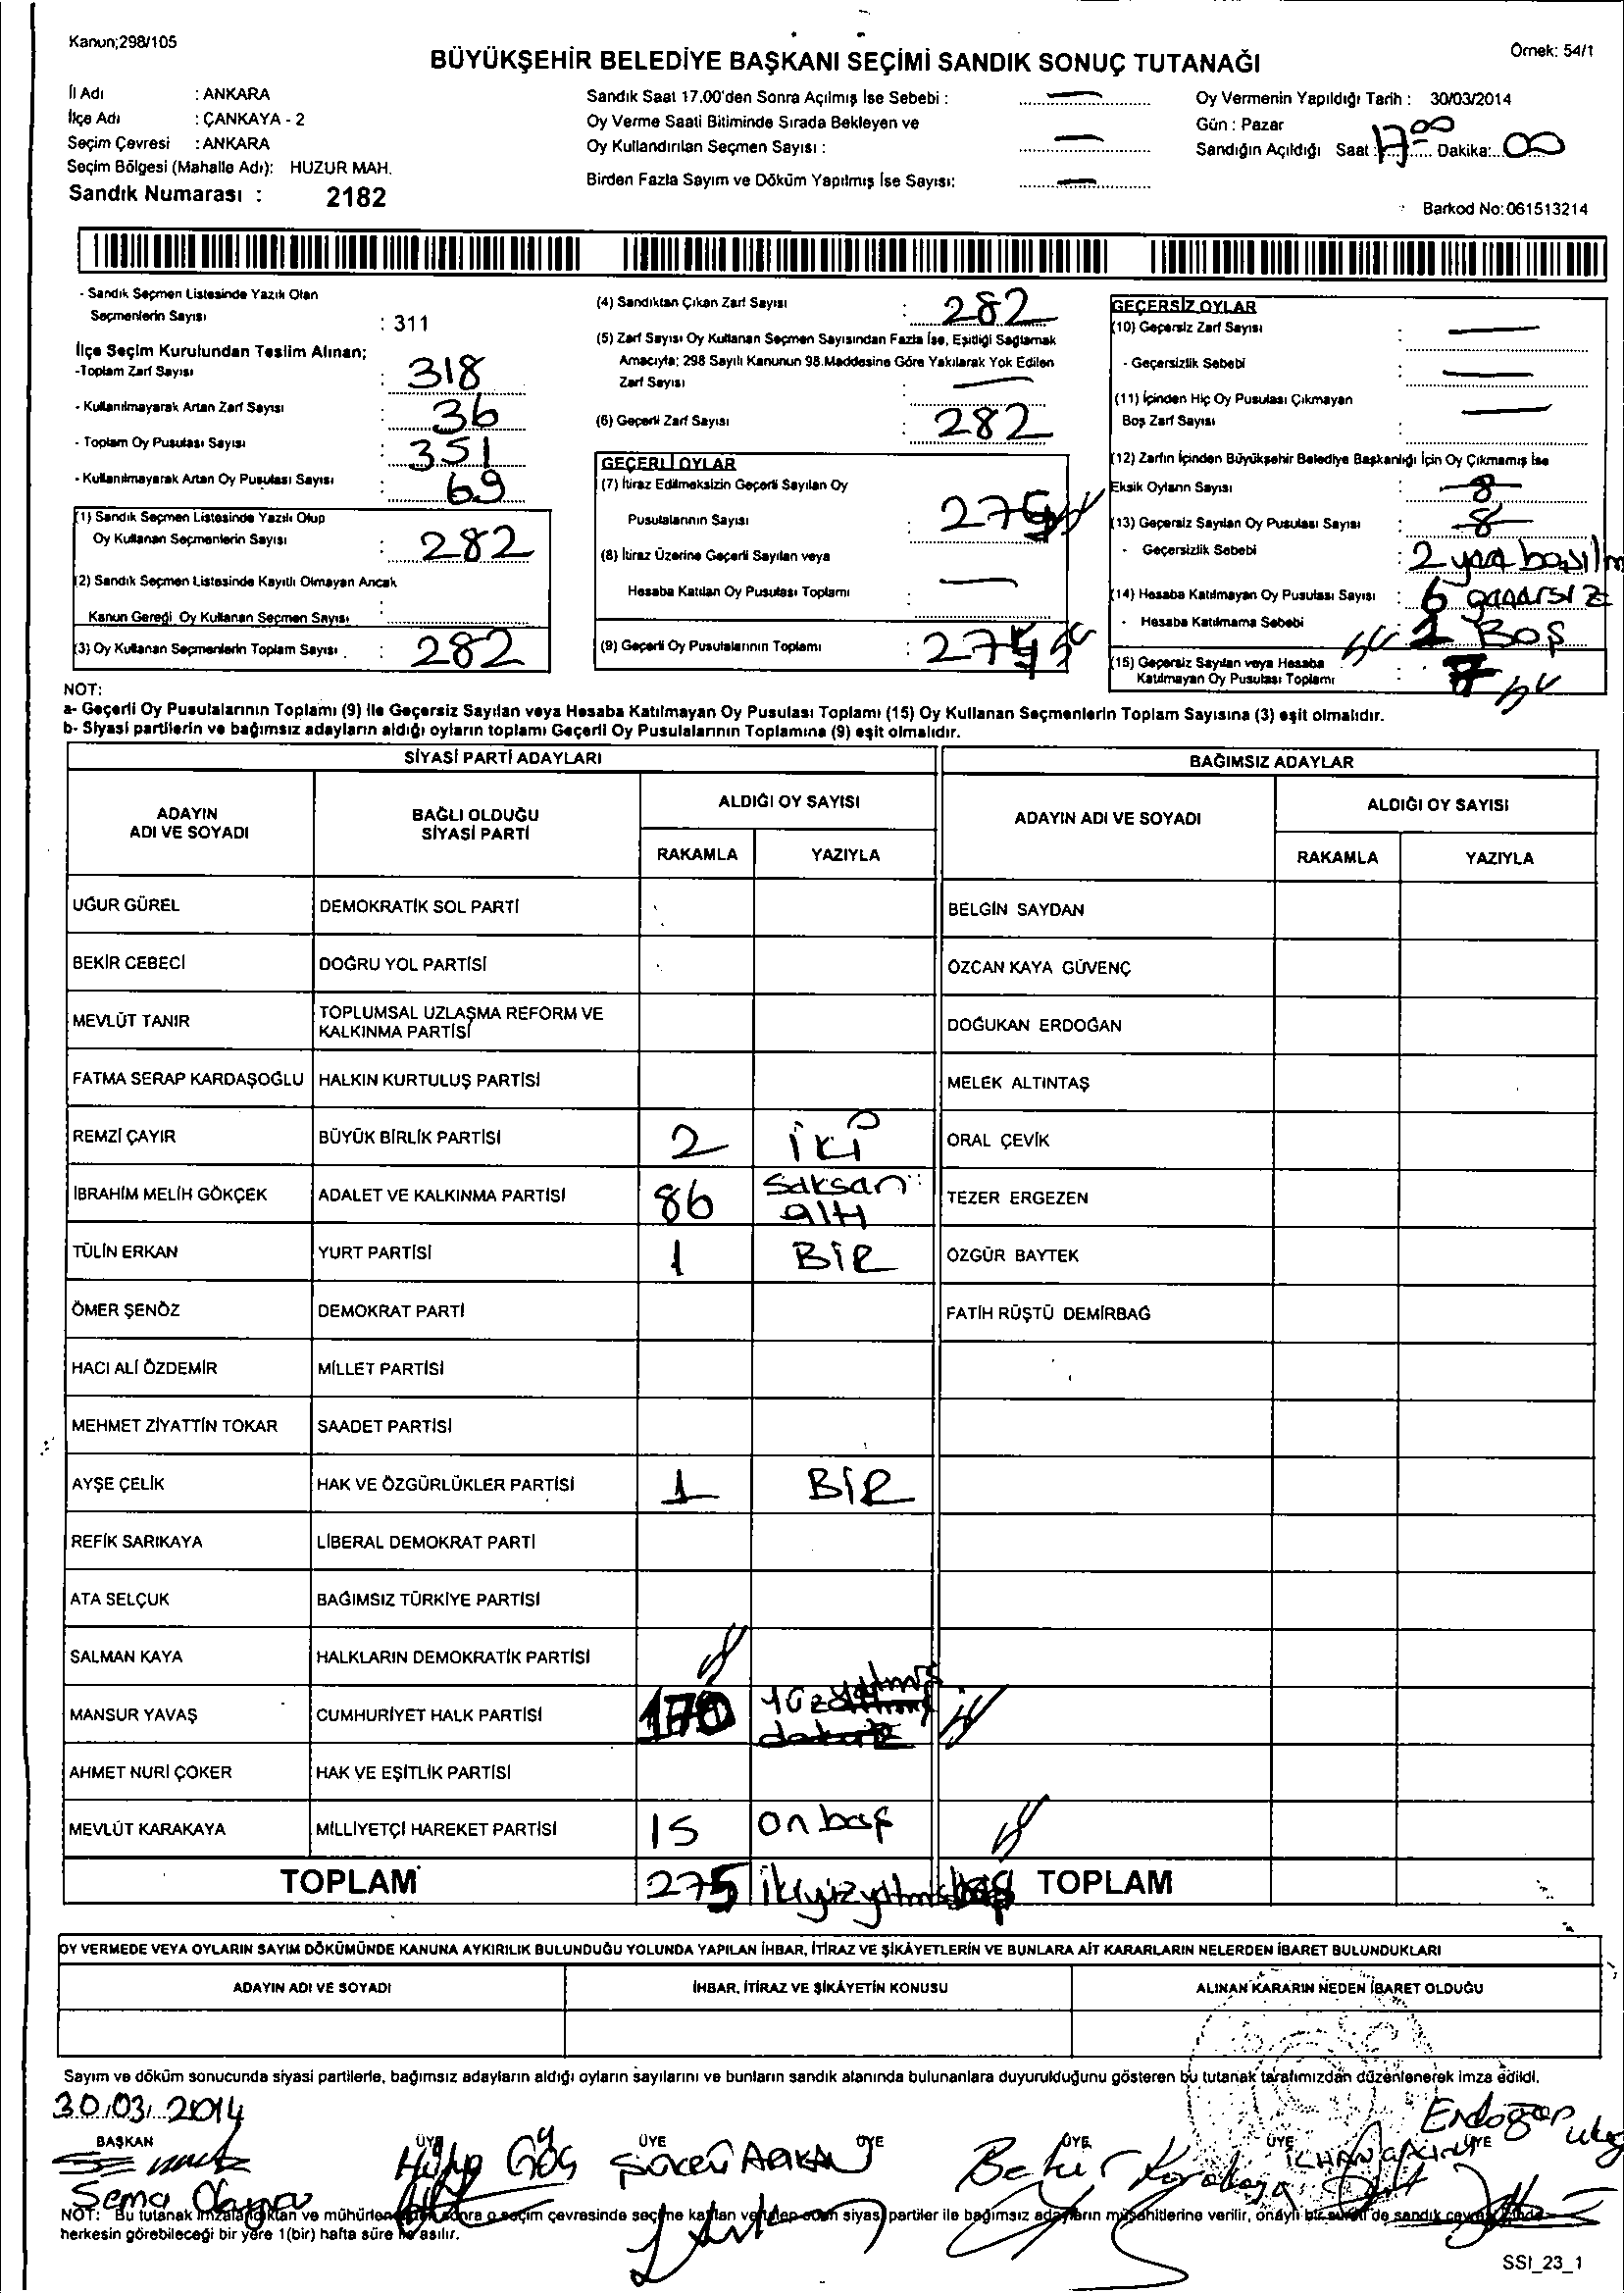 Kanun;298/105
Örnek: 54/1
BÜYÜKŞEHİR BELEDİYE BAŞKANI SEÇİMİ SANDIK SONUÇ TUTANAĞI
İl Adı : ANKARA
İlçe Adı : ÇANKAYA - 2
Seçim Çevresi : ANKARA
Seçim Bölgesi (Mahalle Adı): HUZUR MAH.
Sandık Numarası : 2182
Sandık Saat 17.00'den Sonra Açılmış İse Sebebi : —
Oy Verme Saati Bitiminde Sırada Bekleyen ve
Oy Kullandırılan Seçmen Sayısı : —
Birden Fazla Sayım ve Döküm Yapılmış İse Sayısı: —
Oy Vermenin Yapıldığı Tarih : 30/03/2014
Gün : Pazar
Sandığın Açıldığı Saat : 17 00 Dakika: 00
Barkod No:061513214
- Sandık Seçmen Listesinde Yazılı Olan
Seçmenlerin Sayısı : 311
İlçe Seçim Kurulundan Teslim Alınan;
-Toplam Zarf Sayısı : 318
- Kullanılmayarak Artan Zarf Sayısı : 36
- Toplam Oy Pusulası Sayısı : 351
- Kullanılmayarak Artan Oy Pusulası Sayısı : 69
(1) Sandık Seçmen Listesinde Yazılı Olup
Oy Kullanan Seçmenlerin Sayısı : 282
(2) Sandık Seçmen Listesinde Kayıtlı Olmayan Ancak
Kanun Gereği Oy Kullanan Seçmen Sayısı :
(3) Oy Kullanan Seçmenlerin Toplam Sayısı : 282
(4) Sandıktan Çıkan Zarf Sayısı : 282
(5) Zarf Sayısı Oy Kullanan Seçmen Sayısından Fazla İse, Eşitliği Sağlamak
Amacıyla; 298 Sayılı Kanunun 98.Maddesine Göre Yakılarak Yok Edilen
Zarf Sayısı : —
(6) Geçerli Zarf Sayısı : 282
GEÇERLİ OYLAR
(7) İtiraz Edilmeksizin Geçerli Sayılan Oy
Pusulalarının Sayısı : 275
(8) İtiraz Üzerine Geçerli Sayılan veya
Hesaba Katılan Oy Pusulası Toplamı : —
(9) Geçerli Oy Pusulalarının Toplamı : 275
GEÇERSİZ OYLAR
(10) Geçersiz Zarf Sayısı : —
- Geçersizlik Sebebi : —
(11) İçinden Hiç Oy Pusulası Çıkmayan
Boş Zarf Sayısı : —
(12) Zarfın İçinden Büyükşehir Belediye Başkanlığı İçin Oy Çıkmamış İse
Eksik Oyların Sayısı : 8
(13) Geçersiz Sayılan Oy Pusulası Sayısı : 8
- Geçersizlik Sebebi : 2
(14) Hesaba Katılmayan Oy Pusulası Sayısı : 6
- Hesaba Katılmama Sebebi 1 BOŞ
(15) Geçersiz Sayılan veya Hesaba
Katılmayan Oy Pusulası Toplamı : 7
NOT:
a- Geçerli Oy Pusulalarının Toplamı (9) ile Geçersiz Sayılan veya Hesaba Katılmayan Oy Pusulası Toplamı (15) Oy Kullanan Seçmenlerin Toplam Sayısına (3) eşit olmalıdır.
b- Siyasi partilerin ve bağımsız adayların aldığı oyların toplamı Geçerli Oy Pusulalarının Toplamına (9) eşit olmalıdır.
SİYASİ PARTİ ADAYLARI
BAĞIMSIZ ADAYLAR
ADAYIN ADI VE SOYADI
BAĞLI OLDUĞU SİYASİ PARTİ
ALDIĞI OY SAYISI
RAKAMLA YAZIYLA
ADAYIN ADI VE SOYADI
ALDIĞI OY SAYISI
RAKAMLA YAZIYLA
UĞUR GÜREL DEMOKRATİK SOL PARTİ BELGİN SAYDAN
BEKİR CEBECİ DOĞRU YOL PARTİSİ ÖZCAN KAYA GÜVENÇ
MEVLÜT TANIR TOPLUMSAL UZLAŞMA REFORM VE KALKINMA PARTİSİ DOĞUKAN ERDOĞAN
FATMA SERAP KARDAŞOĞLU HALKIN KURTULUŞ PARTİSİ MELEK ALTINTAŞ
REMZİ ÇAYIR BÜYÜK BİRLİK PARTİSİ 2 İki ORAL ÇEVİK
İBRAHİM MELİH GÖKÇEK ADALET VE KALKINMA PARTİSİ 86 Seksen altı TEZER ERGEZEN
TÜLİN ERKAN YURT PARTİSİ 1 BİR ÖZGÜR BAYTEK
ÖMER ŞENÖZ DEMOKRAT PARTİ FATİH RÜŞTÜ DEMİRBAĞ
HACI ALİ ÖZDEMİR MİLLET PARTİSİ
MEHMET ZİYATTİN TOKAR SAADET PARTİSİ
AYŞE ÇELİK HAK VE ÖZGÜRLÜKLER PARTİSİ 1 BİR
REFİK SARIKAYA LİBERAL DEMOKRAT PARTİ
ATA SELÇUK BAĞIMSIZ TÜRKİYE PARTİSİ
SALMAN KAYA HALKLARIN DEMOKRATİK PARTİSİ
MANSUR YAVAŞ CUMHURİYET HALK PARTİSİ 170
AHMET NURİ ÇOKER HAK VE EŞİTLİK PARTİSİ
MEVLÜT KARAKAYA MİLLİYETÇİ HAREKET PARTİSİ 15 on beş
TOPLAM 275 ikiyüzyetmişbeş TOPLAM
OY VERMEDE VEYA OYLARIN SAYIM DÖKÜMÜNDE KANUNA AYKIRILIK BULUNDUĞU YOLUNDA YAPILAN İHBAR, İTİRAZ VE ŞİKÂYETLERİN VE BUNLARA AİT KARARLARIN NELERDEN İBARET BULUNDUKLARI
ADAYIN ADI VE SOYADI İHBAR, İTİRAZ VE ŞİKÂYETİN KONUSU ALINAN KARARIN NEDEN İBARET OLDUĞU
Sayım ve döküm sonucunda siyasi partilerle, bağımsız adayların aldığı oyların sayılarını ve bunların sandık alanında bulunanlara duyurulduğunu gösteren bu tutanak tarafımızdan düzenlenerek imza edildi.
30.03.2014
BAŞKAN ÜYE ÜYE ÜYE ÜYE ÜYE ÜYE
NOT: Bu tutanak imzalandıktan ve mühürlendikten sonra o seçim çevresinde seçime katılan ve talep eden siyasi partiler ile bağımsız adayların müşahitlerine verilir, onaylı bir sureti de sandık çevresinde
herkesin görebileceği bir yere 1(bir) hafta süre ile asılır.
SSI_23_1